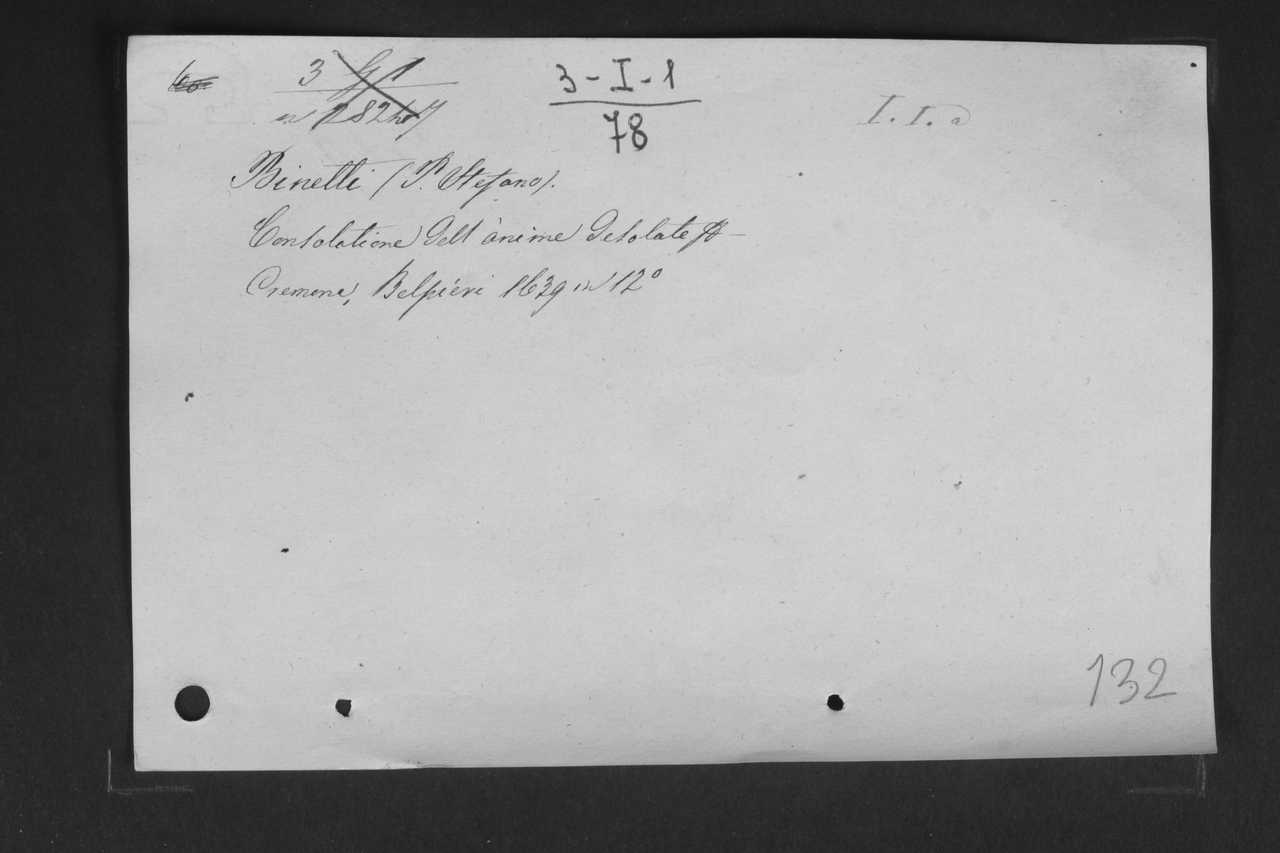 3 G 1
3-I-1
78
I. I. a
Binetti (P. Stefano).
Consolatione dell'anime desolate
Cremona, Belpieri 1639 in 12°
132